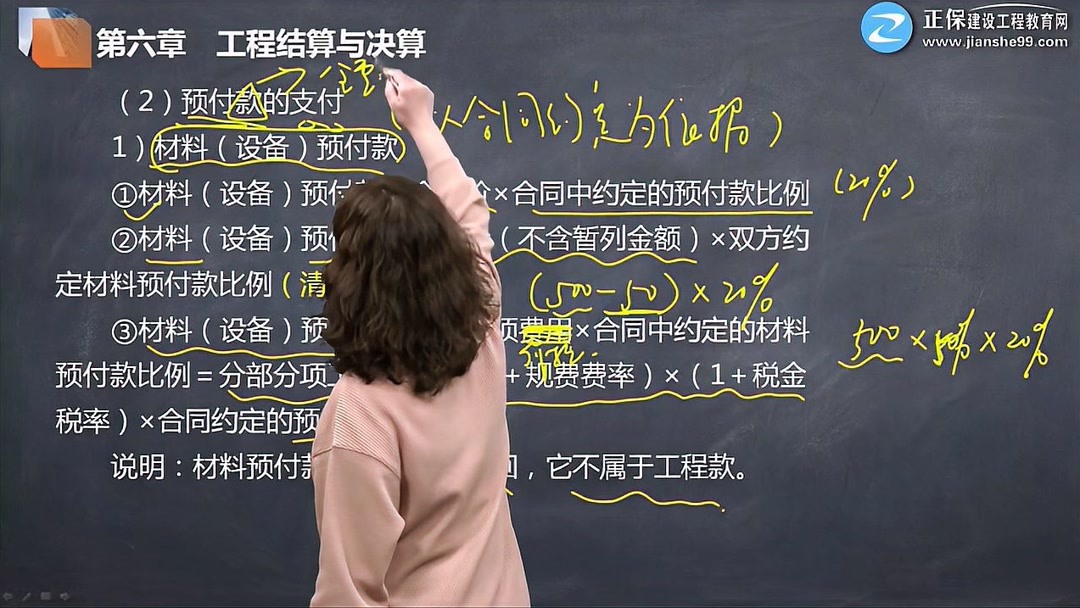 第六章 工程结算与决算
正保建设工程教育网
www.jianshe99.com
（2）预付款的支付
（以合同约定为依据）
1）材料（设备）预付款
①材料（设备）预付 ×合同中约定的预付款比例 （20%）
②材料（设备）预 （不含暂列金额）×双方约
定材料预付款比例（清
(500-50)×20%
③材料（设备）预 项费用×合同中约定的材料
500×50%×20%
预付款比例＝分部分项 ＋规费费率）×（1＋税金
税率）×合同约定的预
说明：材料预付款 ，它不属于工程款。